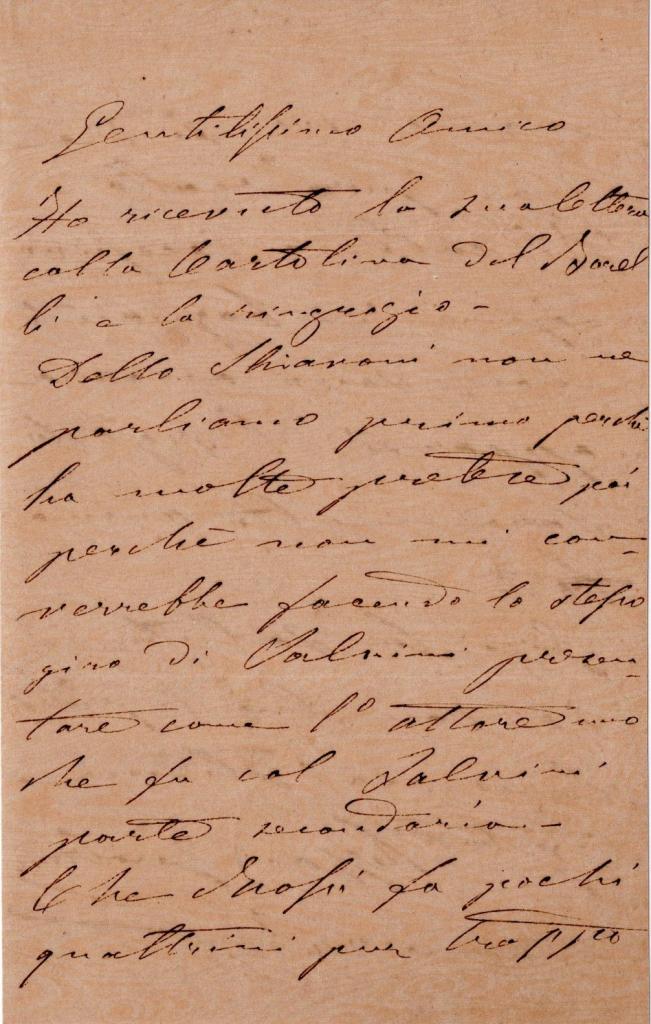 Gentilissimo Amico
Ho ricevuto la sua lettera
colla Cartolina del Borel
li e la ringrazio -
Dello Schiavoni non ne
parliamo primo perchè
ha molte pretese poi
perchè non mi con-
verrebbe facendo lo stesso
giro di Salvini presen-
tare come 1º attore uno
che fu col Salvini
parte secondaria -
Che Rossi fa pochi
quattrini pur troppo